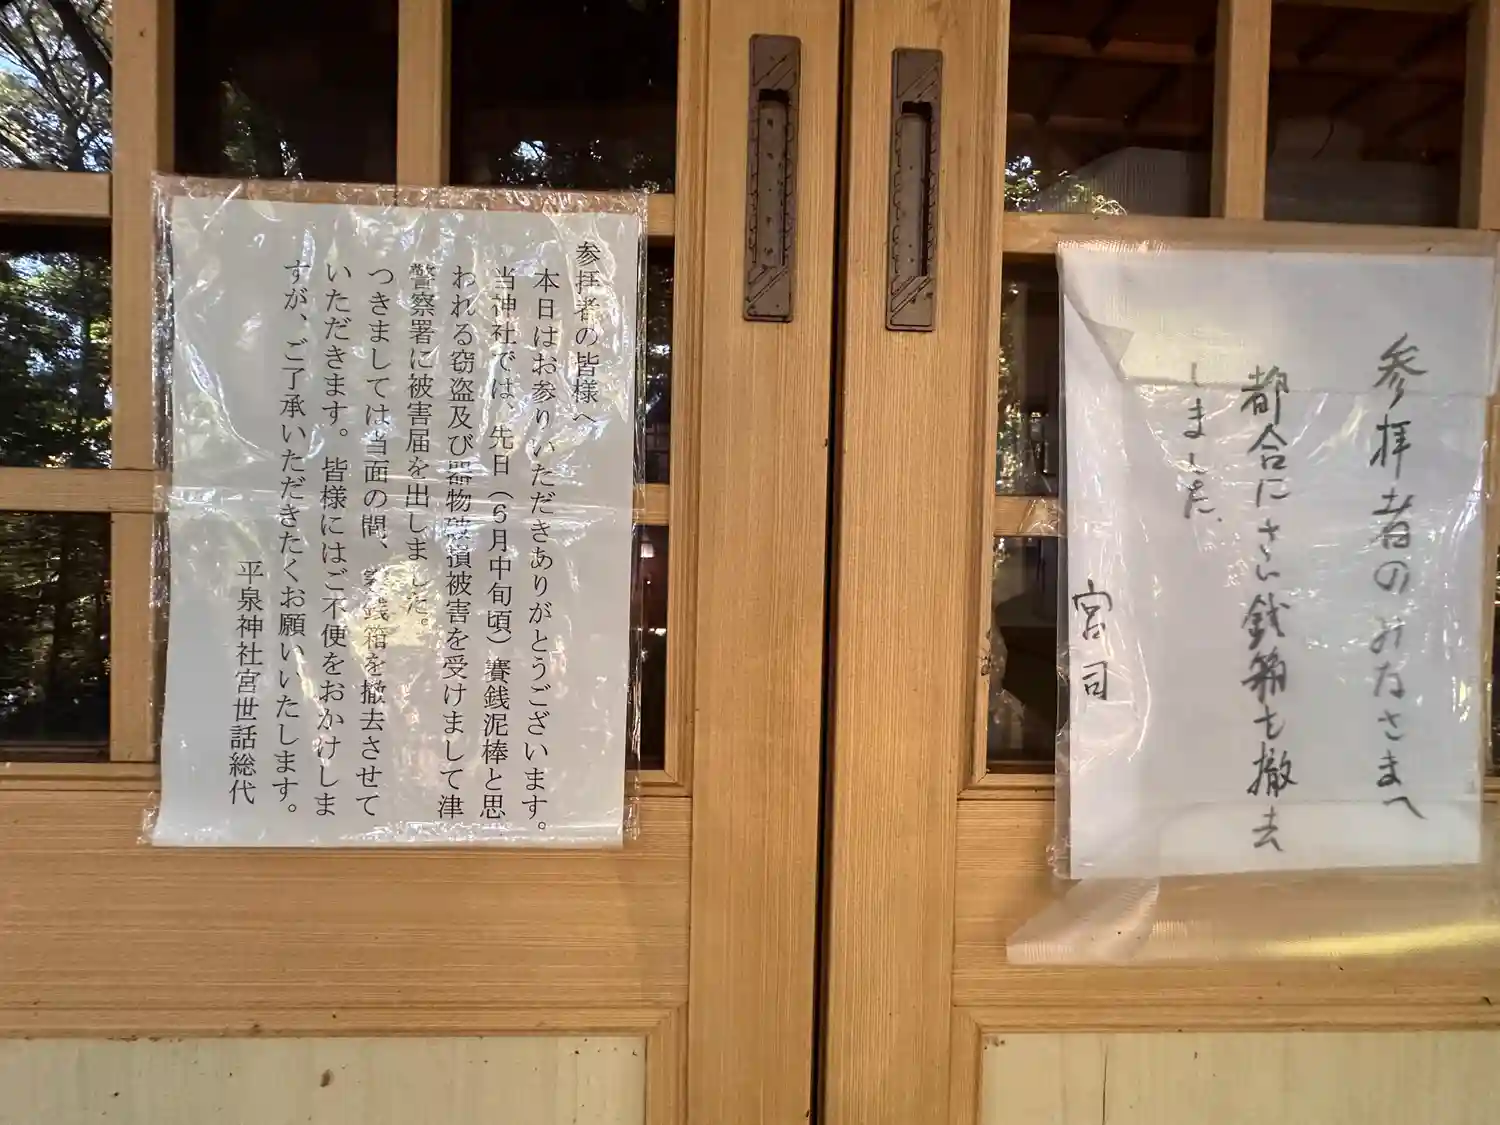 参拝者のみなさまへ
都合にさい銭箱を撤去
しました、
宮司
参拝者の皆様へ
本日はお参りいただきありがとうございます。
当神社では、先日（6月中旬頃）賽銭泥棒と思
われる窃盗及び器物破損被害を受けまして津
警察署に被害届を出しました。
つきましては当面の間、賽銭箱を撤去させて
いただきます。皆様にはご不便をおかけしま
すが、ご了承いただきたくお願いいたします。
平泉神社宮世話総代